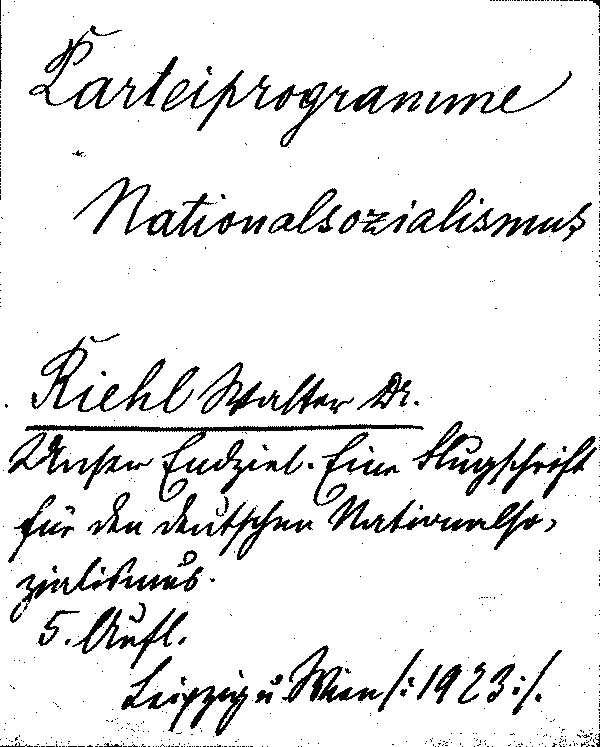 Parteiprogramme
Nationalsozialismus
Riehl Walter Dr.
Unser Endziel. Eine Flugschrift
für den deutschen Nationalso-
zialismus.
5. Aufl.
Leipzig u Wien /:1923:/.